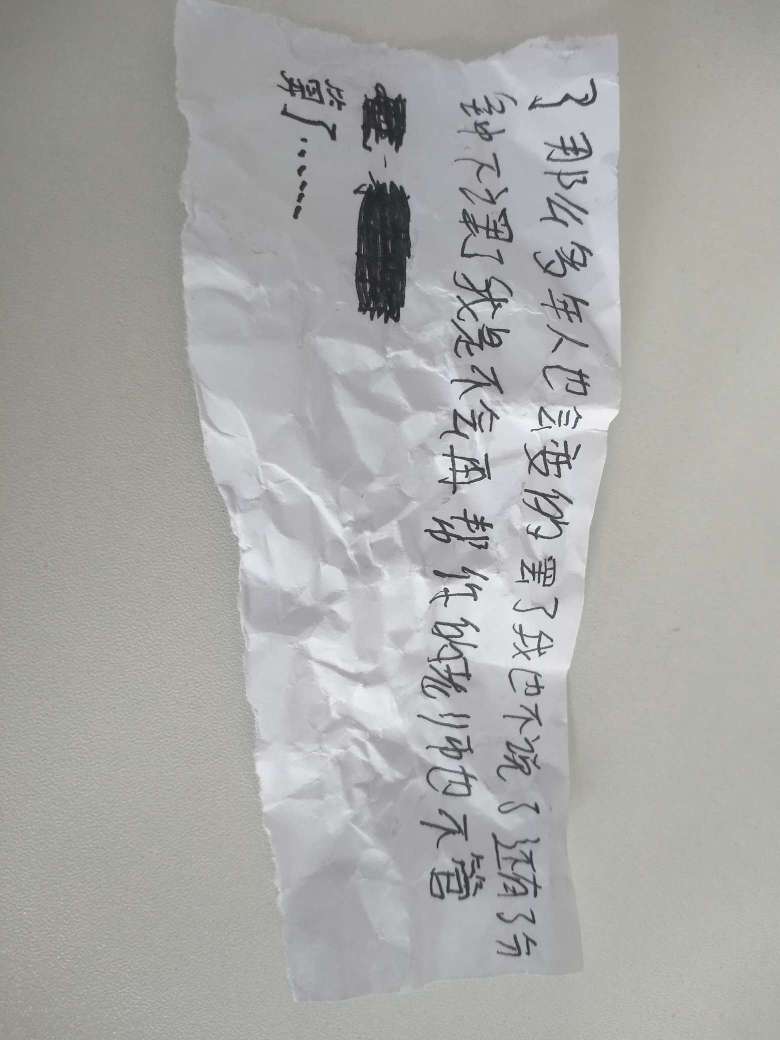 了那么多年人也会变的罢了我也不说了还有3分
钟下课了我是不会再帮你的班师也不管
算了……